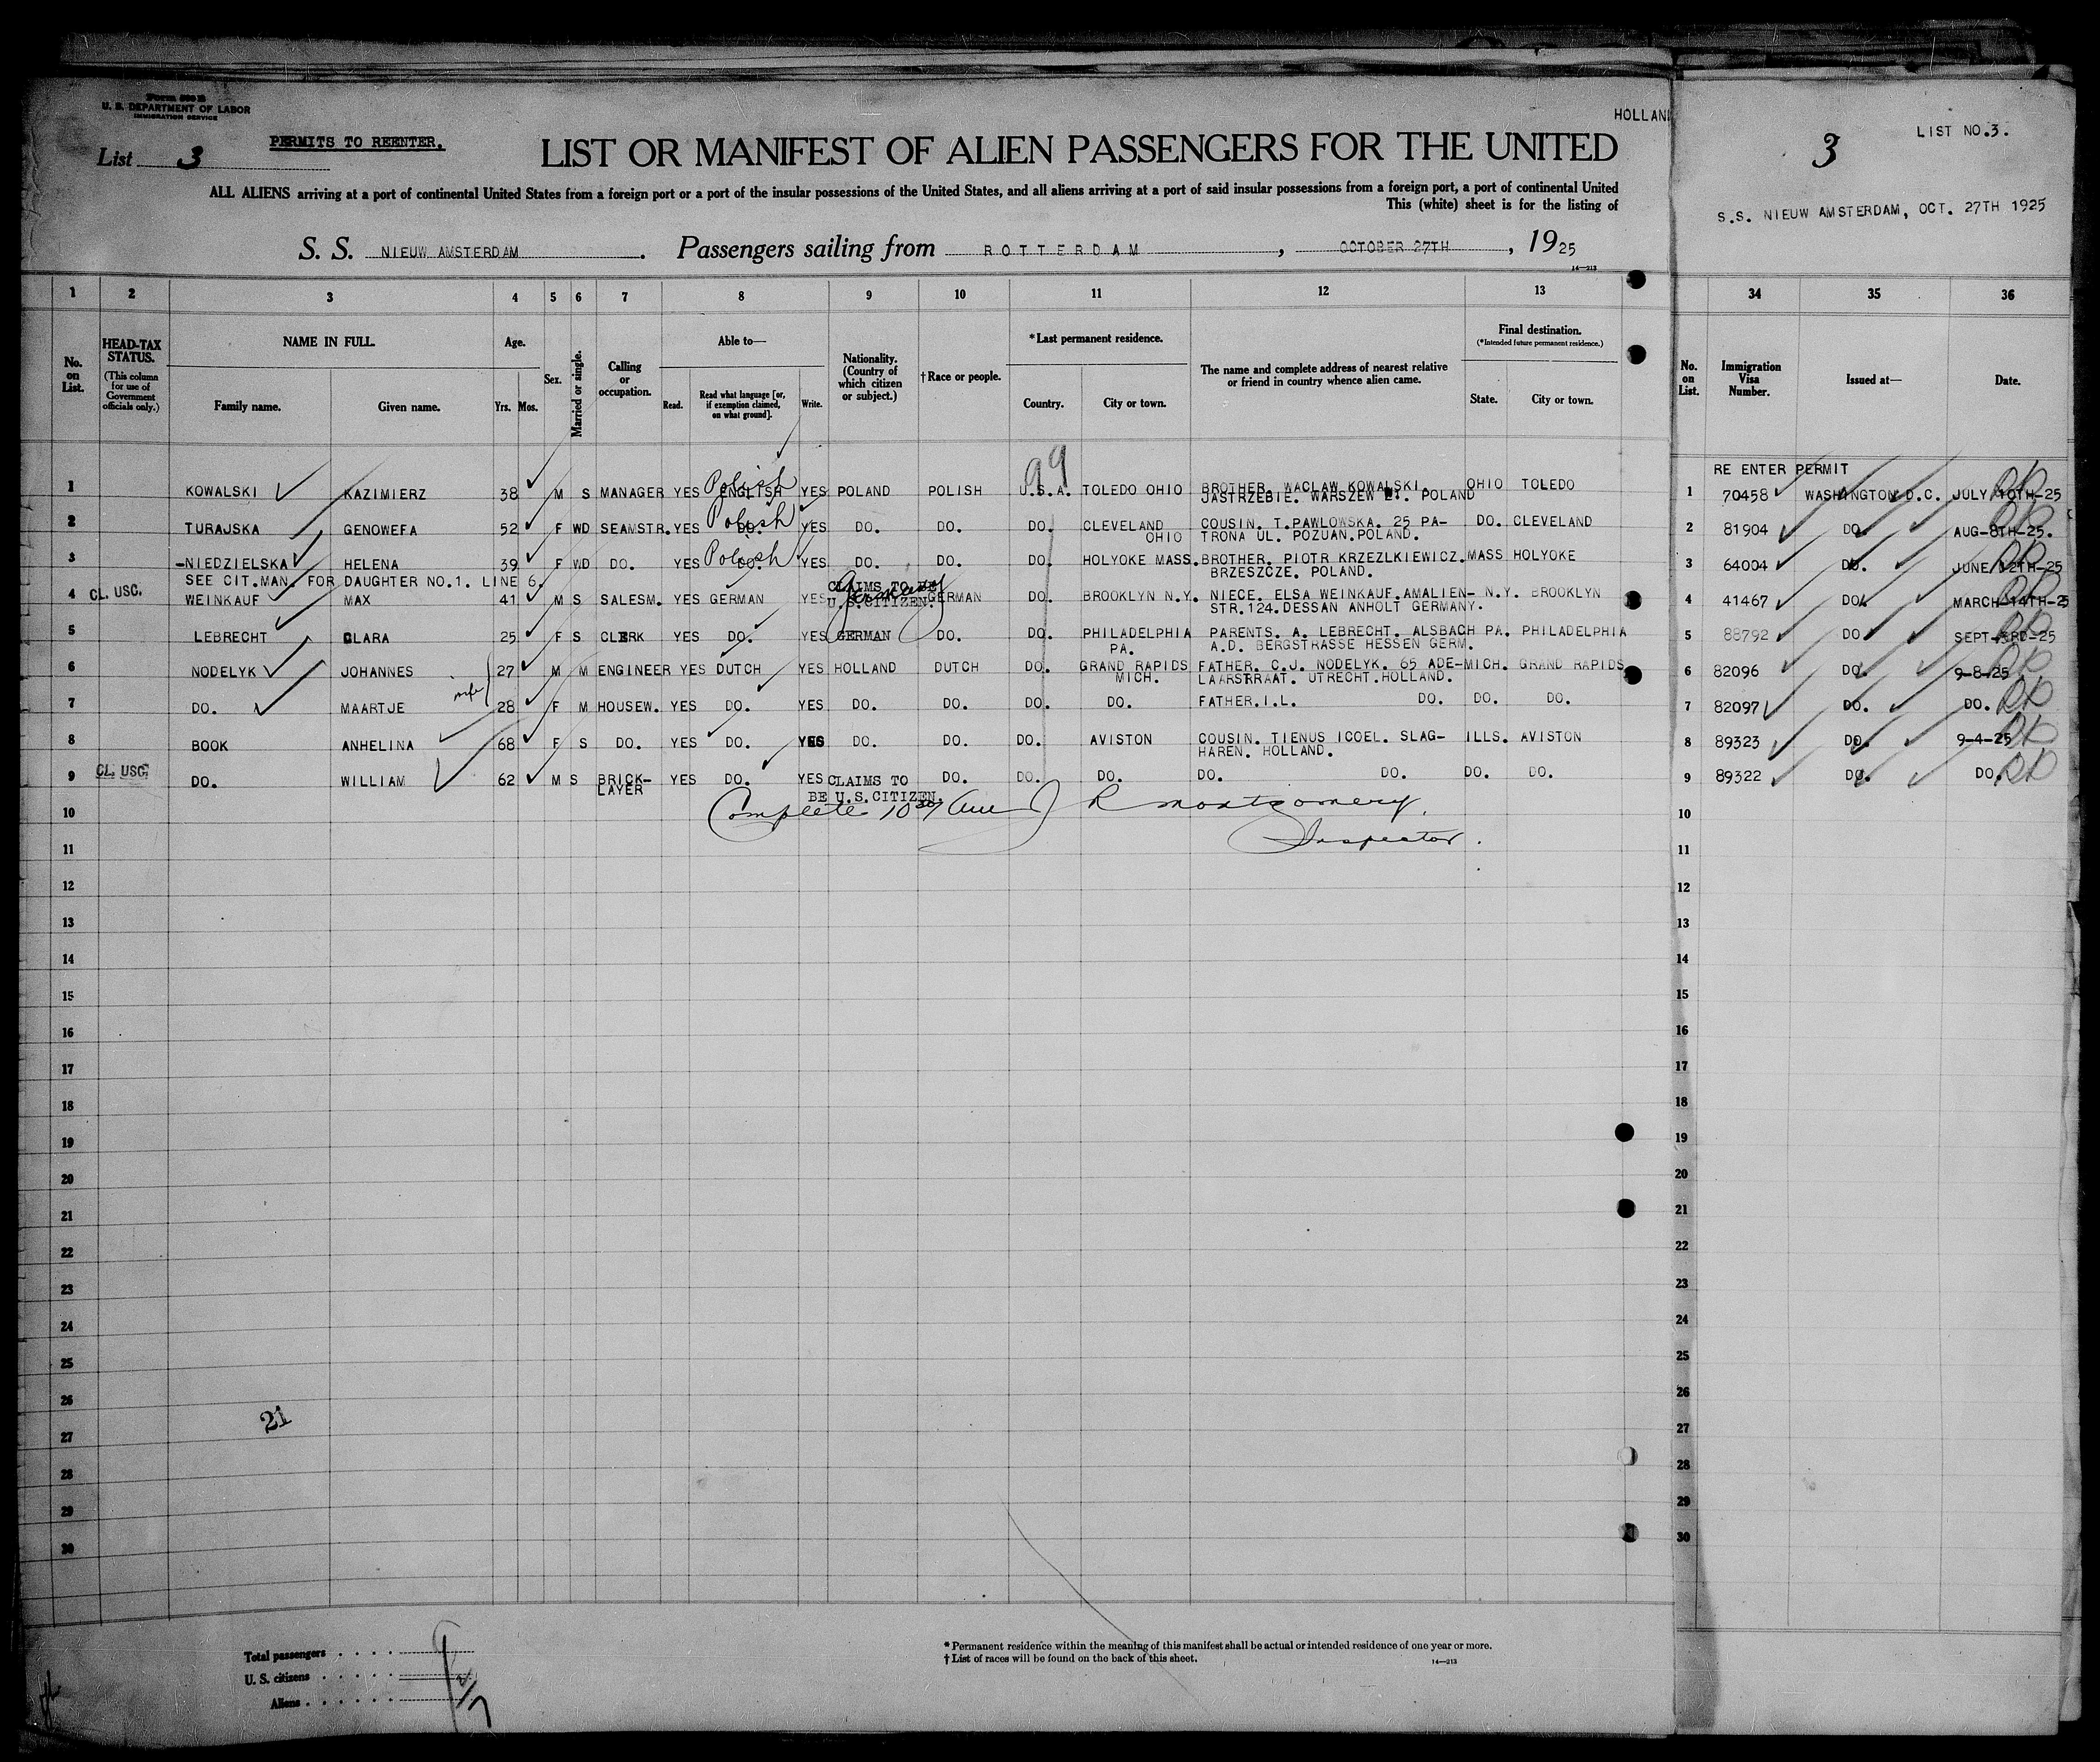 Form 500 B
U. S. DEPARTMENT OF LABOR
IMMIGRATION SERVICE
PERMITS TO REENTER.
HOLLAN
List 3
LIST OR MANIFEST OF ALIEN PASSENGERS FOR THE UNITED
ALL ALIENS arriving at a port of continental United States from a foreign port or a port of the insular possessions of the United States, and all aliens arriving at a port of said insular possessions from a foreign port, a port of continental United
This (white) sheet is for the listing of
S. S. NIEUW AMSTERDAM. Passengers sailing from ROTTERDAM, OCTOBER 27TH, 1925
14—213
3 LIST NO.3.
S.S. NIEUW AMSTERDAM, OCT. 27TH 1925
1 2 3 4 5 6 7 8 9 10 11 12 13 34 35 36
No. on List.
HEAD-TAX STATUS.
(This column for use of Government officials only.)
NAME IN FULL.
Family name. Given name.
Age.
Yrs. Mos.
Sex.
Married or single.
Calling or occupation.
Able to—
Read. Read what language [or, if exemption claimed, on what ground]. Write.
Nationality. (Country of which citizen or subject.)
†Race or people.
*Last permanent residence.
Country. City or town.
The name and complete address of nearest relative or friend in country whence alien came.
Final destination.
(*Intended future permanent residence.)
State. City or town.
No. on List.
Immigration Visa Number.
Issued at—
Date.
99
RE ENTER PERMIT
1 KOWALSKI KAZIMIERZ 38 M S MANAGER YES ENGLISH Polish YES POLAND POLISH U.S.A. TOLEDO OHIO BROTHER. WACLAW KOWALSKI. OHIO TOLEDO 1 70458 WASHINGTON D.C. JULY 10TH-25
JASTRZEBIE. WARSZEW POLAND
2 TURAJSKA GENOWEFA 52 F WD SEAMSTR. YES DO. Polish YES DO. DO. DO. CLEVELAND COUSIN. T.PAWLOWSKA. 25 PA- DO. CLEVELAND 2 81904 DO. AUG-8TH-25.
OHIO TRONA UL. POZUAN.POLAND.
3 -NIEDZIELSKA HELENA 39 F WD DO. YES DO. Polish YES DO. DO. DO. HOLYOKE MASS. BROTHER. PIOTR KRZEZLKIEWICZ. MASS HOLYOKE 3 64004 DO. JUNE 12TH-25
BRZESZCZE. POLAND.
SEE CIT.MAN. FOR DAUGHTER NO.1. LINE 6.
4 CL. USC. WEINKAUF MAX 41 M S SALESM. YES GERMAN YES CLAIMS TO BE U.S.CITIZEN. Germany GERMAN DO. BROOKLYN N.Y. NIECE. ELSA WEINKAUF.AMALIEN- N.Y. BROOKLYN 4 41467 DO. MARCH-14TH-25
STR.124.DESSAN ANHOLT GERMANY.
5 LEBRECHT CLARA 25 F S CLERK YES DO. YES GERMAN DO. DO. PHILADELPHIA PARENTS. A. LEBRECHT. ALSBACH PA. PHILADELPHIA 5 88792 DO SEPT-3RD-25
PA. A.D. BERGSTRASSE HESSEN GERM.
6 NODELYK JOHANNES 27 M M ENGINEER YES DUTCH YES HOLLAND DUTCH DO. GRAND RAPIDS FATHER. C.J. NODELYK. 65 ADE- MICH. GRAND RAPIDS 6 82096 DO. 9-8-25
MICH. LAARSTRAAT. UTRECHT.HOLLAND.
7 DO. MAARTJE wife 28 F M HOUSEW. YES DO. YES DO. DO. DO. DO. FATHER.I.L. DO. DO. DO. 7 82097 DO. DO.
8 BOOK ANHELINA 68 F S DO. YES DO. YES DO. DO. DO. AVISTON COUSIN. TIENUS ICOEL. SLAG- ILLS. AVISTON 8 89323 DO. 9-4-25
HAREN. HOLLAND.
9 CL. USC. DO. WILLIAM 62 M S BRICK- YES DO. YES CLAIMS TO DO. DO. DO. DO. DO. DO. DO. 9 89322 DO. DO.
LAYER BE U.S.CITIZEN.
10 Complete J R Montgomery 10
11 Inspector. 11
12 12
13 13
14 14
15 15
16 16
17 17
18 18
19 19
20 20
21 21
22 22
23 23
24 24
25 25
26 26
21
27 27
28 28
29 29
30 30
Total passengers 9
U. S. citizens 2
Aliens 7
* Permanent residence within the meaning of this manifest shall be actual or intended residence of one year or more.
† List of races will be found on the back of this sheet.
14—213